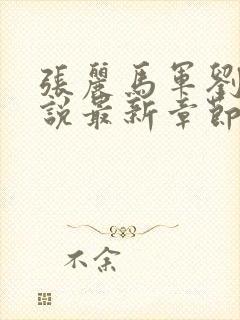 張麗馬軍劉
說最新章節
不余